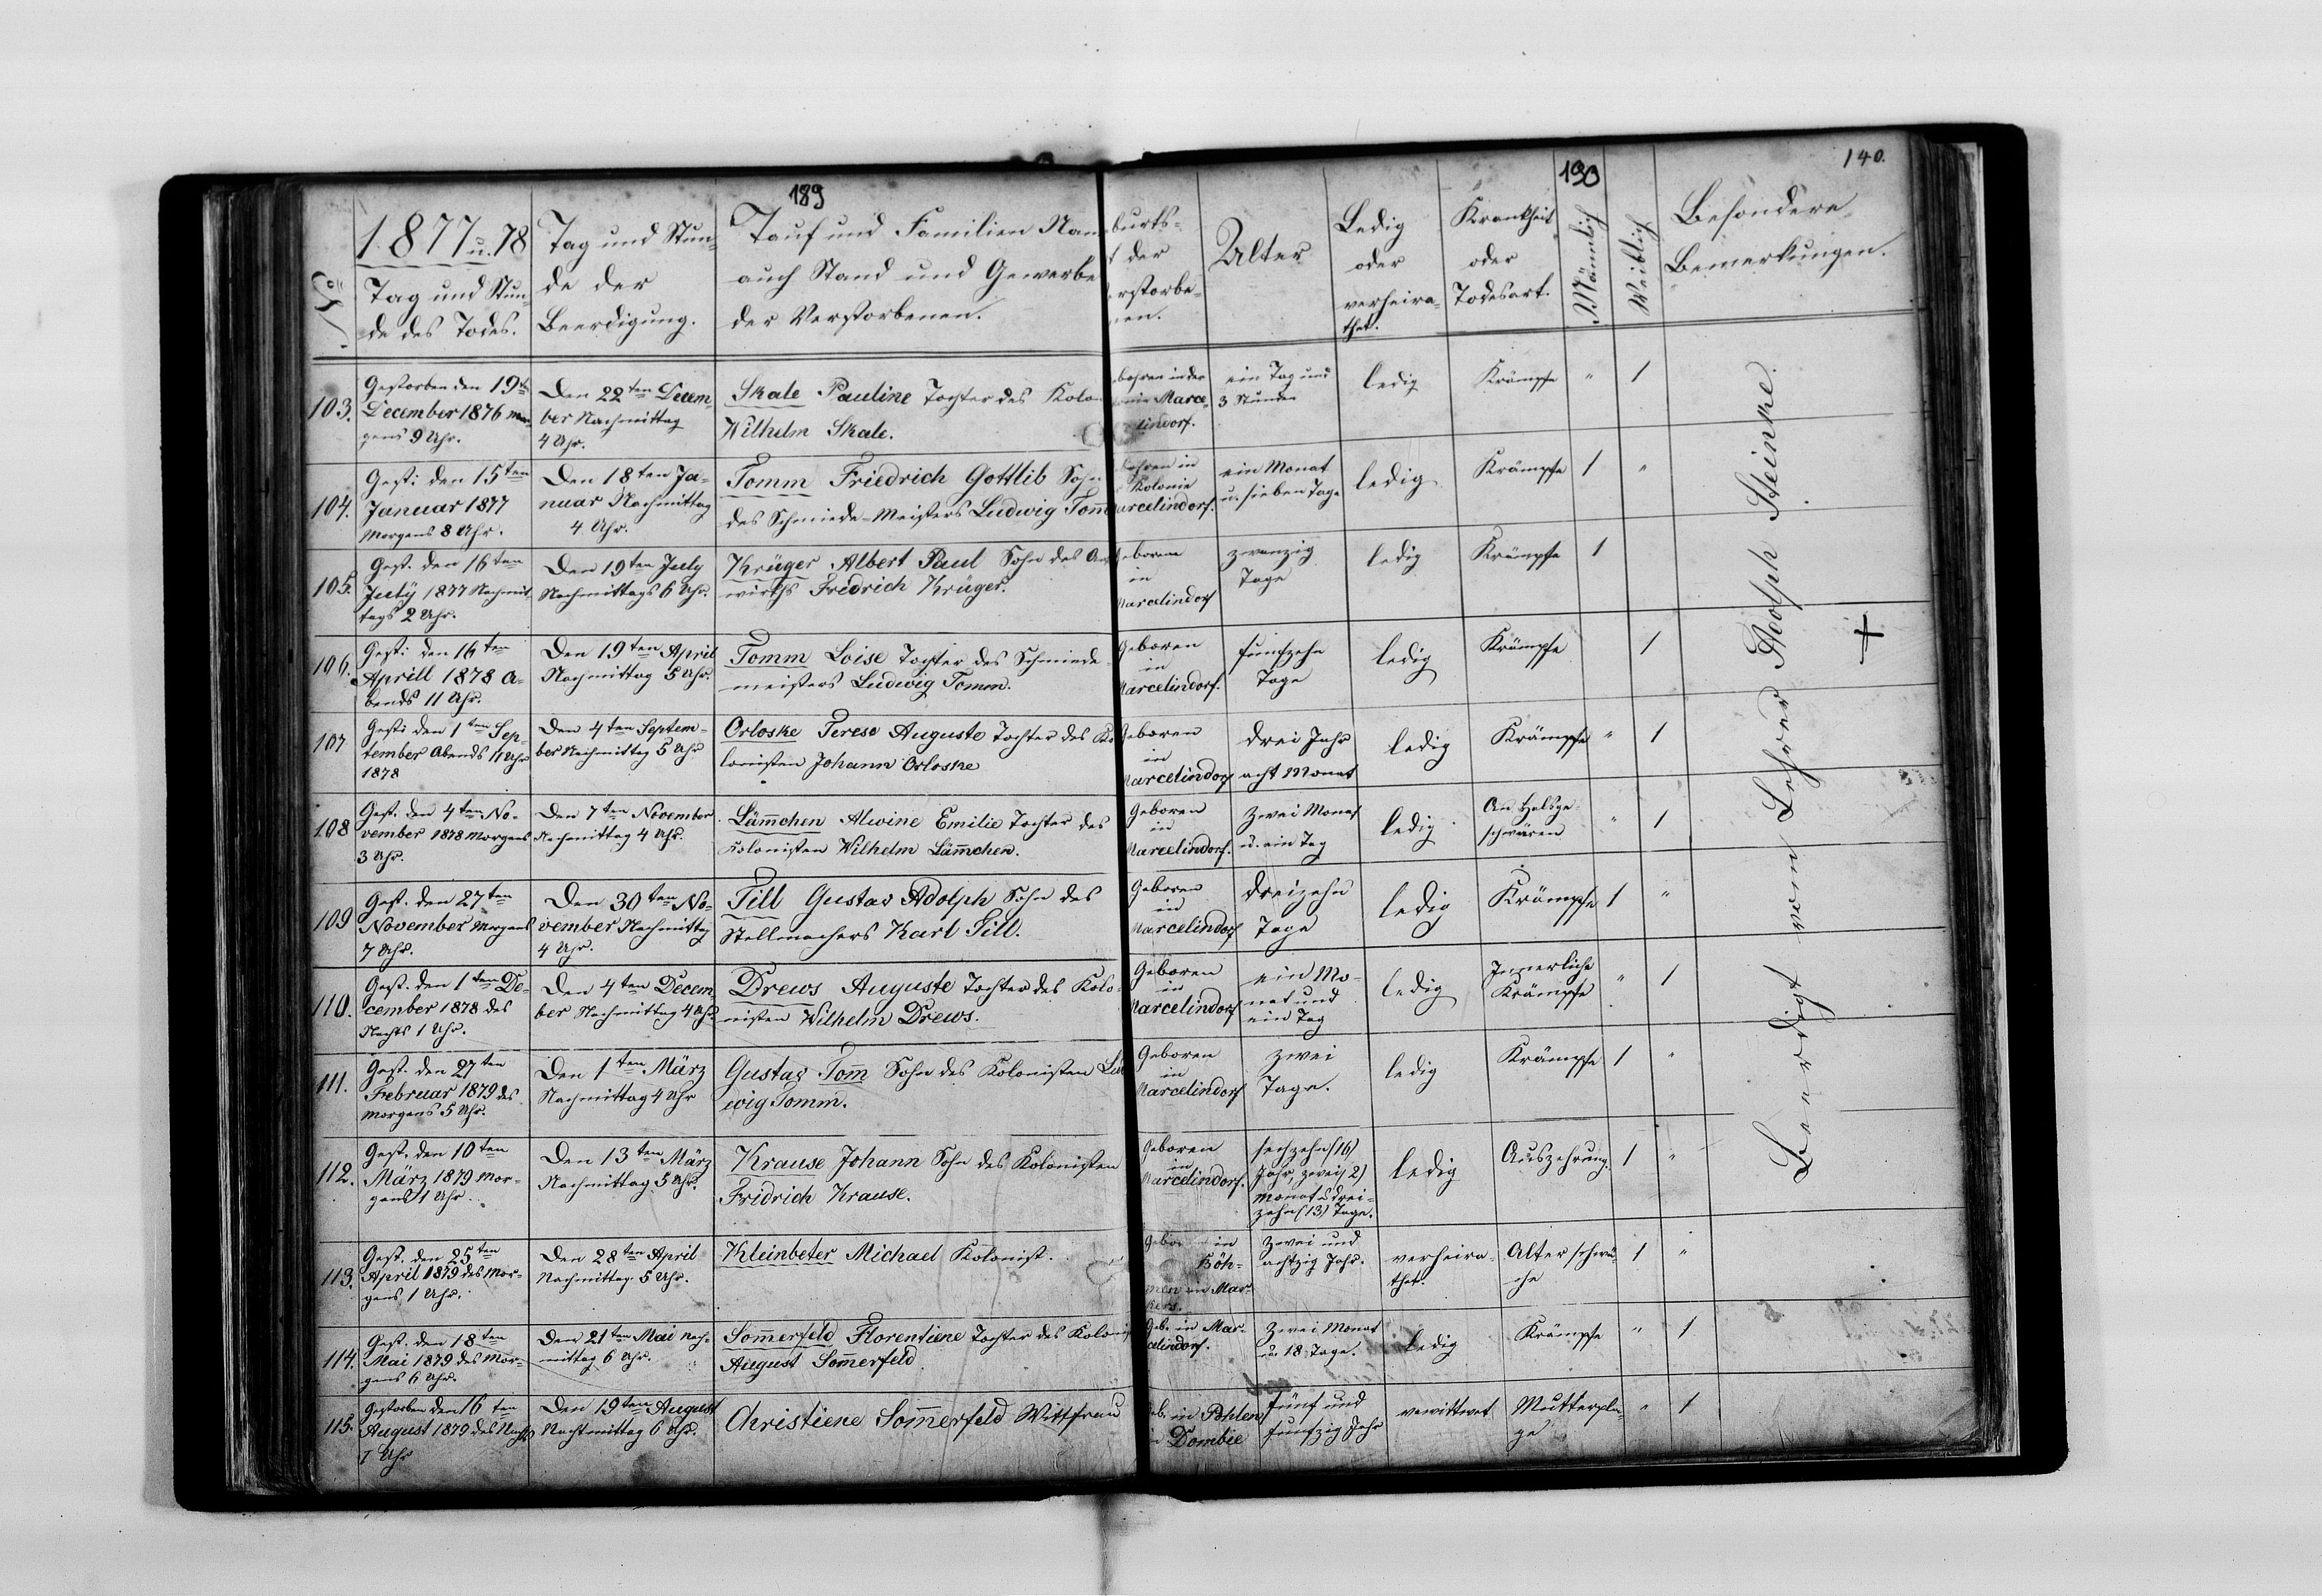 189
190
140.
1877 u. 78
Tag und Stun-
de des Todes.
Tag und Stun-
de der
Beerdigung.
Tauf und Familien Nam
auch Stand und Gewerbe
der Verstorbenen.
burts-
t der
erstorbe-
nen.
Alter
Ledig
oder
verheira-
thet.
Krankheit
oder
Todesart.
Männlich
Weiblich
Besondere
Bemerkungen.
103.
Gestorben den 19ten
December 1876 Mor-
gens 9 Uhr.
Den 22ten Decem-
ber Nachmittag
4 Uhr.
Skale Pauline Tochter des Kolo
Wilhelm Skale.
bohren in der
onie Marce-
lindorf.
ein Tag und
3 Stunden
ledig
Krämpfe
"
1
104.
Gest: den 15ten
Januar 1877
Morgens 8 Uhr.
Den 18ten Ja-
nuar Nachmittag
4 Uhr.
Tomm Friedrich Gottlib Sohn
des Schmiede-Meisters Ludwig Tom̄
bohren in
Kolonie
arcelindorf.
ein Monat
u. sieben Tage
ledig
Krämpfe
1
"
105.
Gest. den 16ten
July 1877 Nachmit-
tags 2 Uhr.
Den 19ten July
Nachmittags 6 Uhr.
Krüger Albert Paul Sohn des
wirths Fridrich Krüger.
eboren
in
Marcelindorf
zwanzig
Tage
ledig
Krämpfe
1
106.
Gest: den 16ten
Aprill 1878 A-
bends 11 Uhr.
Den 19ten April
Nachmittag 5 Uhr.
Tomm Loise Tochter des Schmiede
meisters Ludwig Tomm.
Geboren
in
Marcelindorf.
funfzehn
Tage
ledig
Krämpfe
1
107
Gest: den 1ten Sep-
tember Abends 11 Uhr
1878
Den 4ten Septem-
ber Nachmittag 5 Uhr
Orloske Terese Auguste Tochter des Ko
lonisten Johann Orloske
Geboren
in
Marcelindorf
drei Jahr
acht Monat
ledig
Krämpfe
"
1
108
Gest. den 4ten No-
vember 1878 Morgens
3 Uhr.
Den 7ten November
Nachmittag 4 Uhr.
Läm̄chen Alwine Emilie Tochter des
Kolonisten Wilhelm Läm̄chen.
Geboren
in
Marcelindorf.
Zwei Monat
u. ein Tag
ledig
An Halsge-
schwüren
"
1
109
Gest. den 27ten
November Morgens
7 Uhr.
Den 30ten No-
vember Nachmittag
4 Uhr.
Till Gustav Adolph Sohn des
Stellmachers Karl Till.
Geboren
in
Marcelindorf
dreizehn
Tage
ledig
Krämpfe
1
"
110.
Gest. den 1ten De-
cember 1878 des
Nachts 1 Uhr.
Den 4ten Decem-
ber Nachmittag 4 Uhr
Drews Auguste Tochter des Kolo-
nisten Wilhelm Drews.
Geboren
in
Marcelindorf
ein Mo-
nat und
ein Tag
ledig
Innerliche
Krämpfe
"
1
111.
Gest. den 27ten
Februar 1879 des
Morgens 5 Uhr.
Den 1ten März
Nachmittag 4 Uhr
Gustav Tom̄ Sohn des Kolonisten Lud
wig Tomm.
Geboren
in
Marcelindorf
zwei
Tage.
ledig
Krämpfe
1
"
112.
Gest. den 10ten
März 1879 Mor-
gens 1 Uhr
Den 13ten März
Nachmittag 5 Uhr.
Krause Johann Sohn des Kolonisten
Fridrich Krause.
Geboren
in
Marcelindorf.
sechzehn (16)
Jahr, zwei (2)
Monat u drei-
zehn (13) Tage.
ledig
Auszehrung.
1
"
113.
Gest. den 25ten
April 1879 des Mor-
gens 1 Uhr.
Den 28ten April
Nachmittag 5 Uhr.
Kleinbeter Michael Kolonist.
Gebor in
Böh-
men in Mar-
kers.
zwei und
achtzig Jahr.
verheira-
thet.
Alterschwä-
che
1
"
114.
Gest. den 18ten
Mai 1879 des Mor-
gens 6 Uhr.
Den 21ten Mai Nach-
mittag 6 Uhr.
Som̄erfeld Florentiene Tochter des Koloni
August Som̄erfeld
Geb. in Mar-
celindorf.
Zwei Monat
u. 18 Tage.
ledig
Krämpfe
"
1
115.
Gestorben den 16ten
August 1879 des Nachts
1 Uhr
Den 19ten August
Nachmittag 6 Uhr.
Christiene Som̄erfeld Wittfrau
eb. in Pohlen
in Dombie
fünf und
funfzig Jahr
verwittwet
Mutterpla-
ge
"
1
Beerdigt vom Lehrer Adolph Steinke.